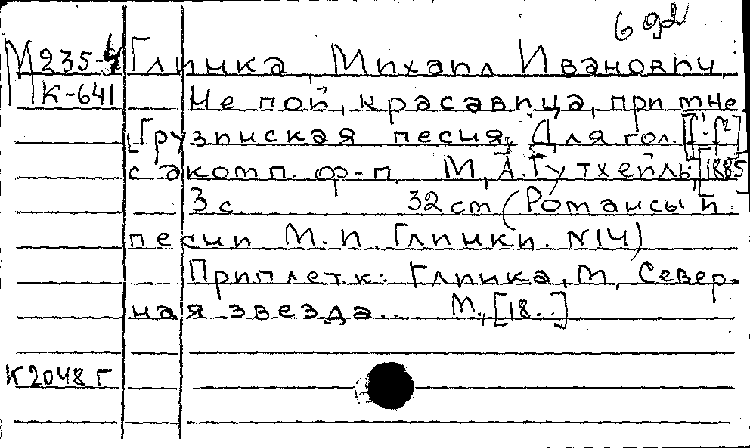 692
М 235-4 Глинка, Михаил Иванович
МК-641 Не пой, красавица, при мне
Грузинская песня. Для гол. [f¹-f²]
с акомп. ф-п. М., А. Гутхейль, [1885]
3 с. 32 cm (Романсы и
песни М. И. Глинки. N14)
Приплет. к: Глинка, М. Север-
ная звезда... М., [18..]
К 2048 г